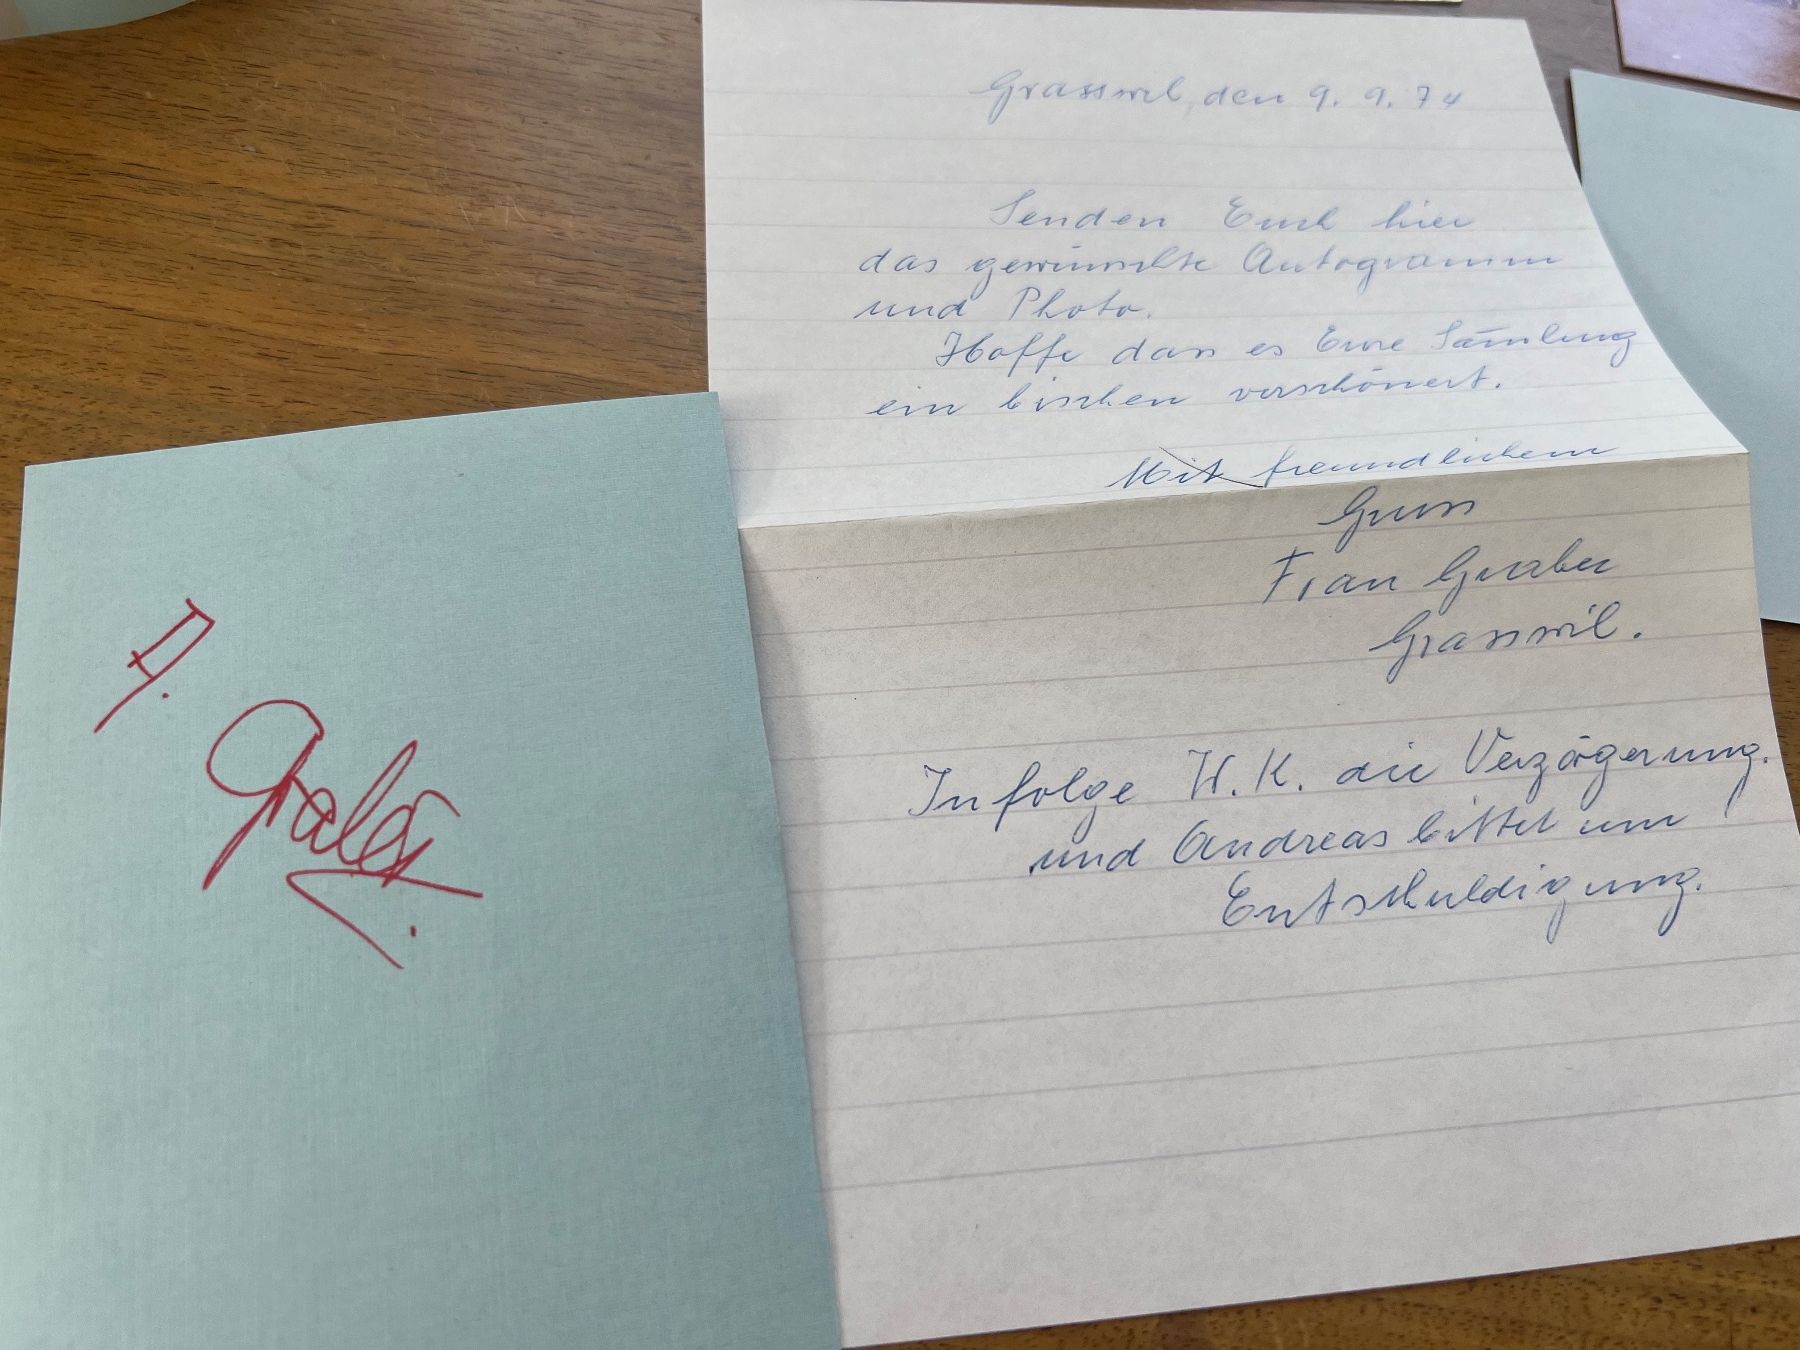 Grasswil, den 9. 9. 74
Senden Euch hier
das gewünschte Autogramm
und Photo.
Hoffe dass es Eure Sam̄lung
ein bischen verschönert.
Mit freundlichem
Gruss
Frau Graber
Grasswil.
Infolge W.K. die Verzögerung.
und Andreas bittet um
Entschuldigung.
A.
Graber